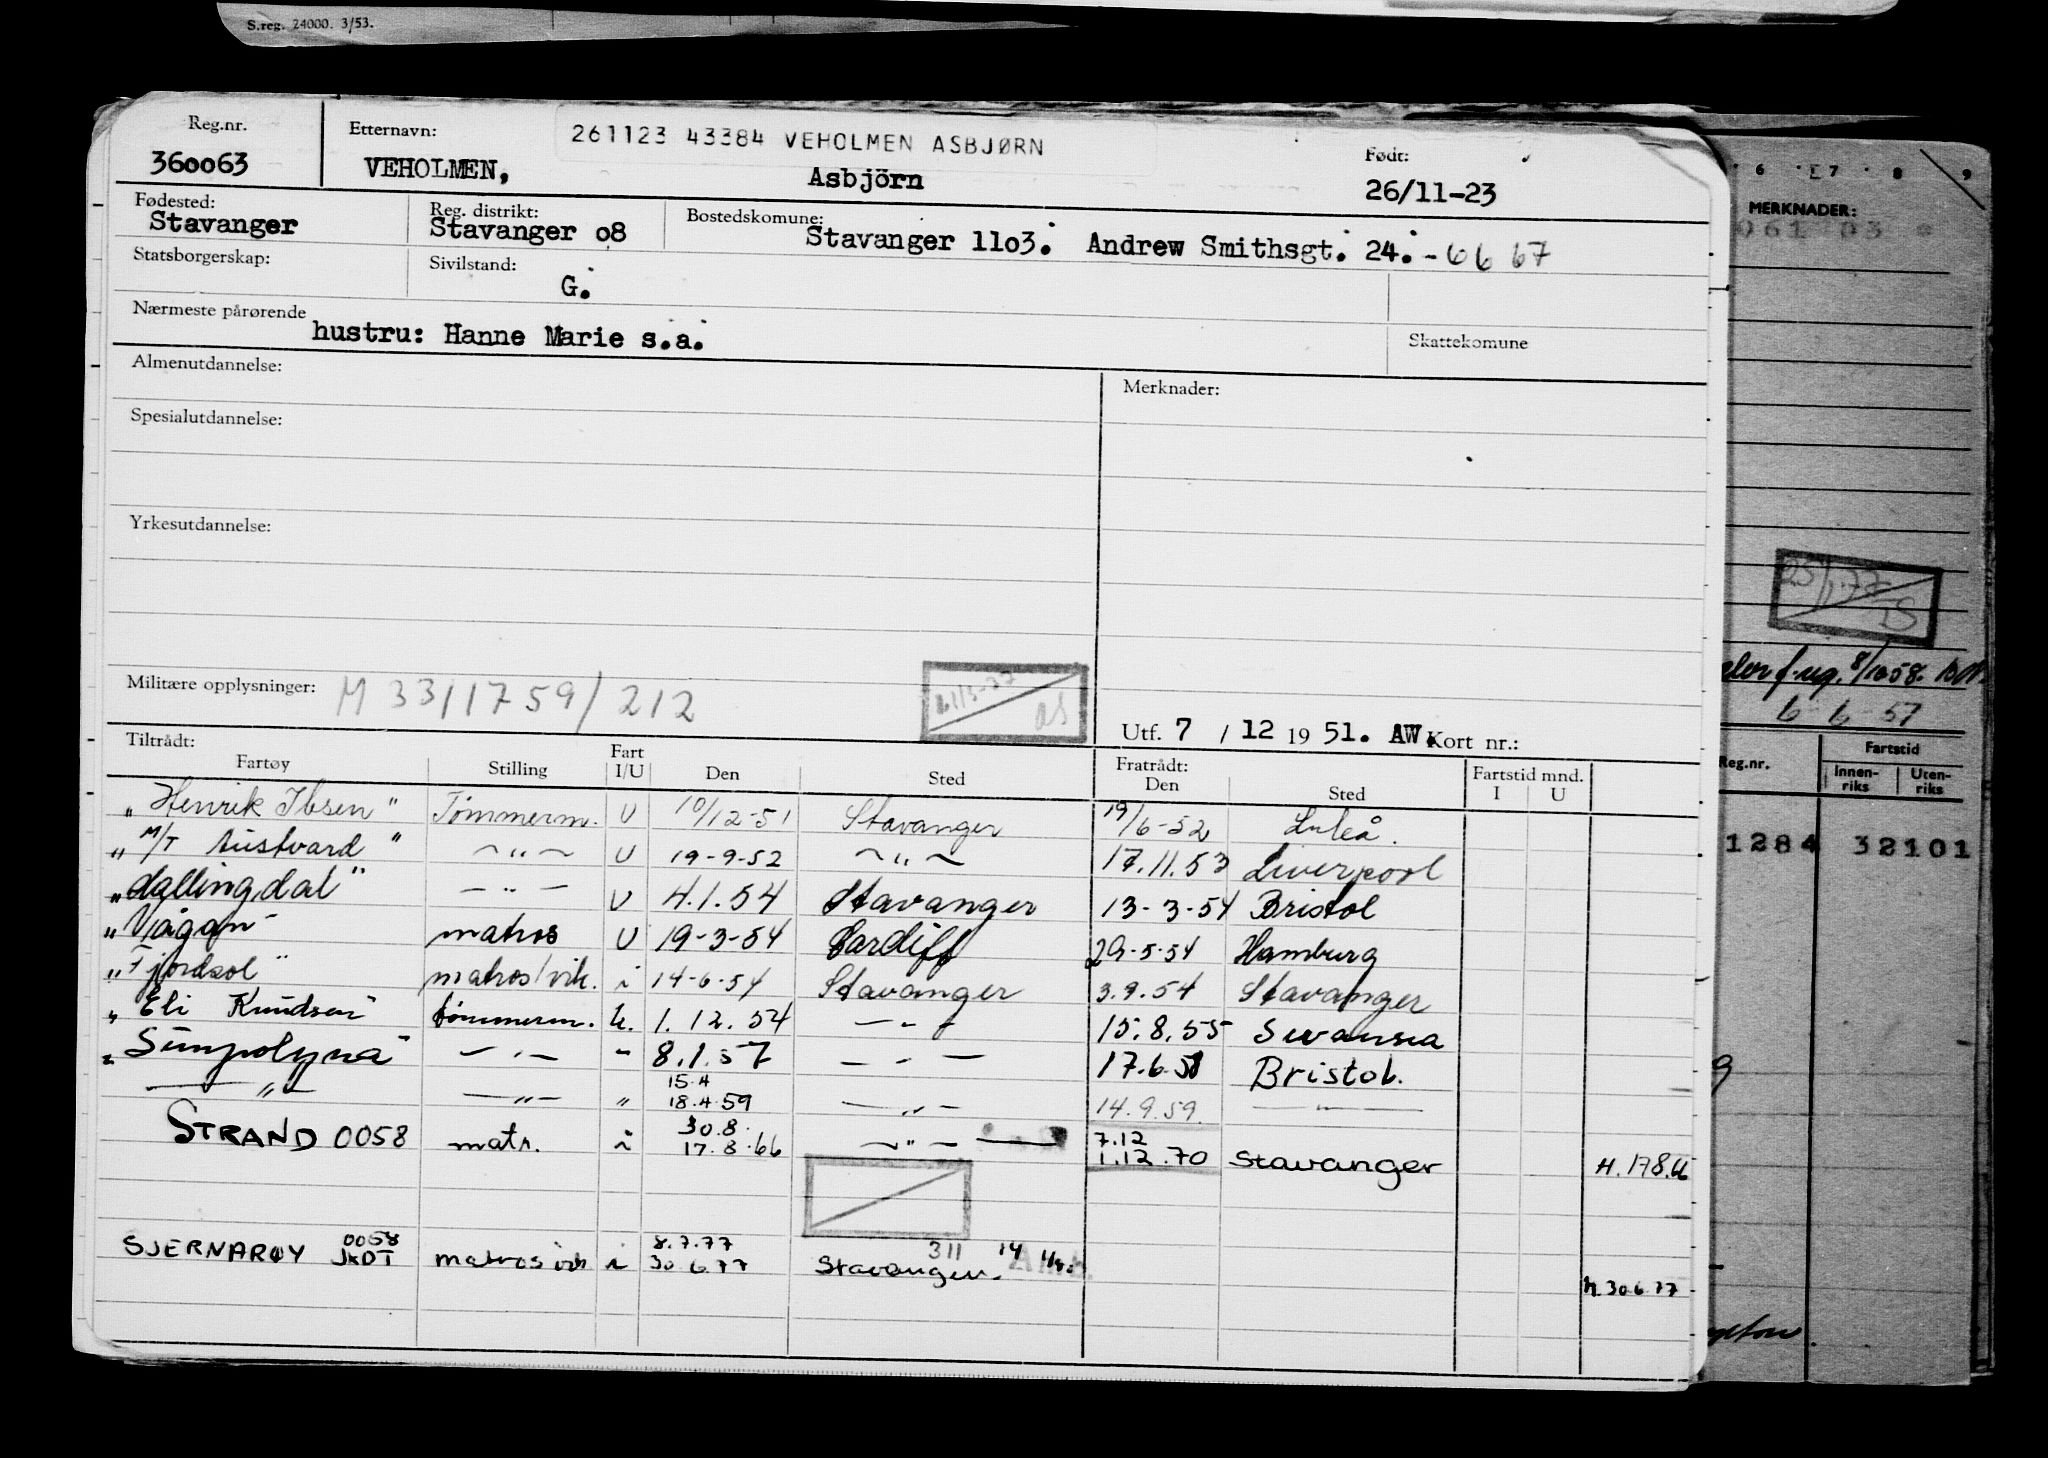 S.reg. 24000. 3/53.
Reg.nr. Etternavn: 261123 43384 VEHOLMEN ASBJØRN Født:
360063 VEHOLMEN, Asbjörn 26/11-23
Fødested: Reg. distrikt: Bostedskomune:
Stavanger Stavanger o8 Stavanger 11o3. Andrew Smithsgt. 24.- 6667
Statsborgerskap: Sivilstand:
G.
Nærmeste pårørende
hustru: Hanne Marie s.a. Skattekomune
Almenutdannelse: Merknader:
Spesialutdannelse:
Yrkesutdannelse:
Militære opplysninger: M 33/1759/212
Utf. 7 / 12 19 51. AW. Kort nr.:
Tiltrådt: Fart Fratrådt: Fartstid mnd.
Fartøy Stilling I/U Den Sted Den Sted I U
"Henrik Ibsen" Tømmerm. U 10/12-51 Stavanger 19/6-52 Luleå.
"M/T Austvard" — " — U 19-9-52 — " — 17.11.53 Liverpool
"Hallingdal" — " — U 4.1.54 Stavanger 13-3-54 Bristol
"Vågan" matros U 19-3-54 Cardiff 29-5-54 Hamburg
"Fjordsol" matros/vik. i 14-6-54 Stavanger 3.9.54 Stavanger
"Eli Knudsen" tømmerm. U. 1.12.54 — " — 15.8.55 Swansea
"Sunpolyna" — " — " 8.1.57 — " — 17.6.58 Bristol.
— " — — " — " 15.4 18.4.59 — " — 14.9.59. — " —
STRAND 0058 matr. i 30.8. 17.8.66 — " — 7.12 1.12.70 Stavanger H.178.66
SJERNARØY 0058 JkDT matros vik i 8.7.77 30.6.77 Stavanger. 311 14 H.30.6.77
6 7 8 9
MERKNADER:
061 03
25/1.77
6-6-57
Reg.nr. Fartstid
Innen-riks Uten-riks
1284 32101